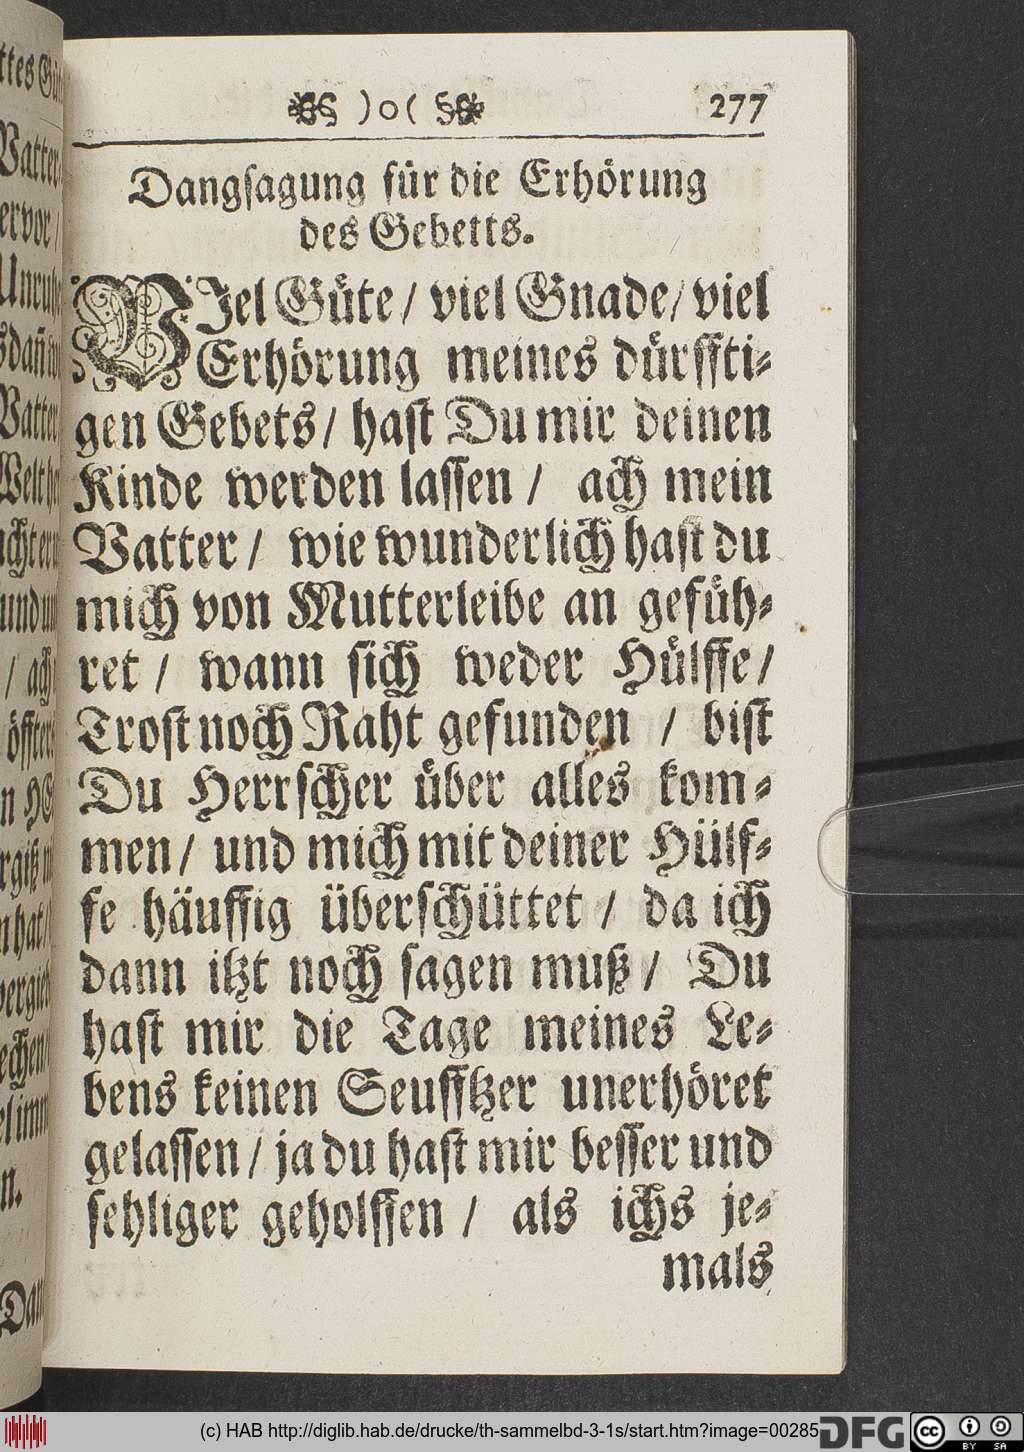 )o( 277
Dangsagung für die Erhörung
des Gebetts.
VIel Güte / viel Gnade / viel
Erhörung meines dürffti-
gen Gebets / hast Du mir deinen
Kinde werden lassen / ach mein
Vatter / wie wunderlich hast du
mich von Mutterleibe an gefüh-
ret / wann sich weder Hülffe /
Trost noch Raht gefunden / bist
Du Herrscher über alles kom-
men / und mich mit deiner Hülf-
fe häuffig überschüttet / da ich
dann itzt noch sagen muß / Du
hast mir die Tage meines Le-
bens keinen Seufftzer unerhöret
gelassen / ja du hast mir besser und
sehliger geholffen / als ichs je-
mals
(c) HAB http://diglib.hab.de/drucke/th-sammelbd-3-1s/start.htm?image=00285
DFG
cc BY SA